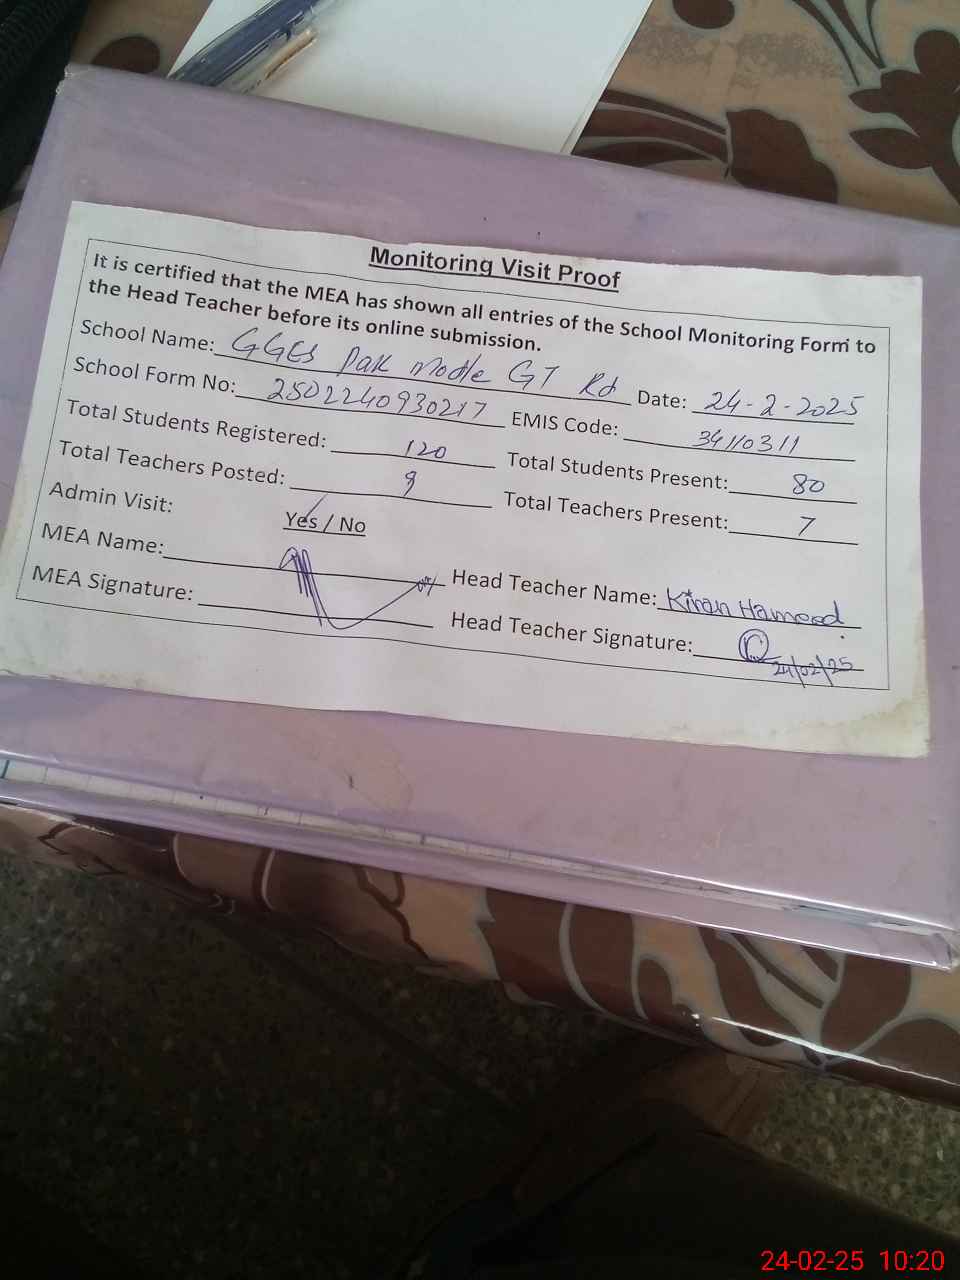 Monitoring Visit Proof
It is certified that the MEA has shown all entries of the School Monitoring Form to
the Head Teacher before its online submission.
School Name: GGES Pak Modle GT Rd Date: 24-2-2025
School Form No: 2502240930217 EMIS Code: 34110311
Total Students Registered: 120 Total Students Present: 80
Total Teachers Posted: 9 Total Teachers Present: 7
Admin Visit: Yes / No
MEA Name: Head Teacher Name: Kiran Hameed
MEA Signature: Head Teacher Signature: 24/02/25
24-02-25 10:20